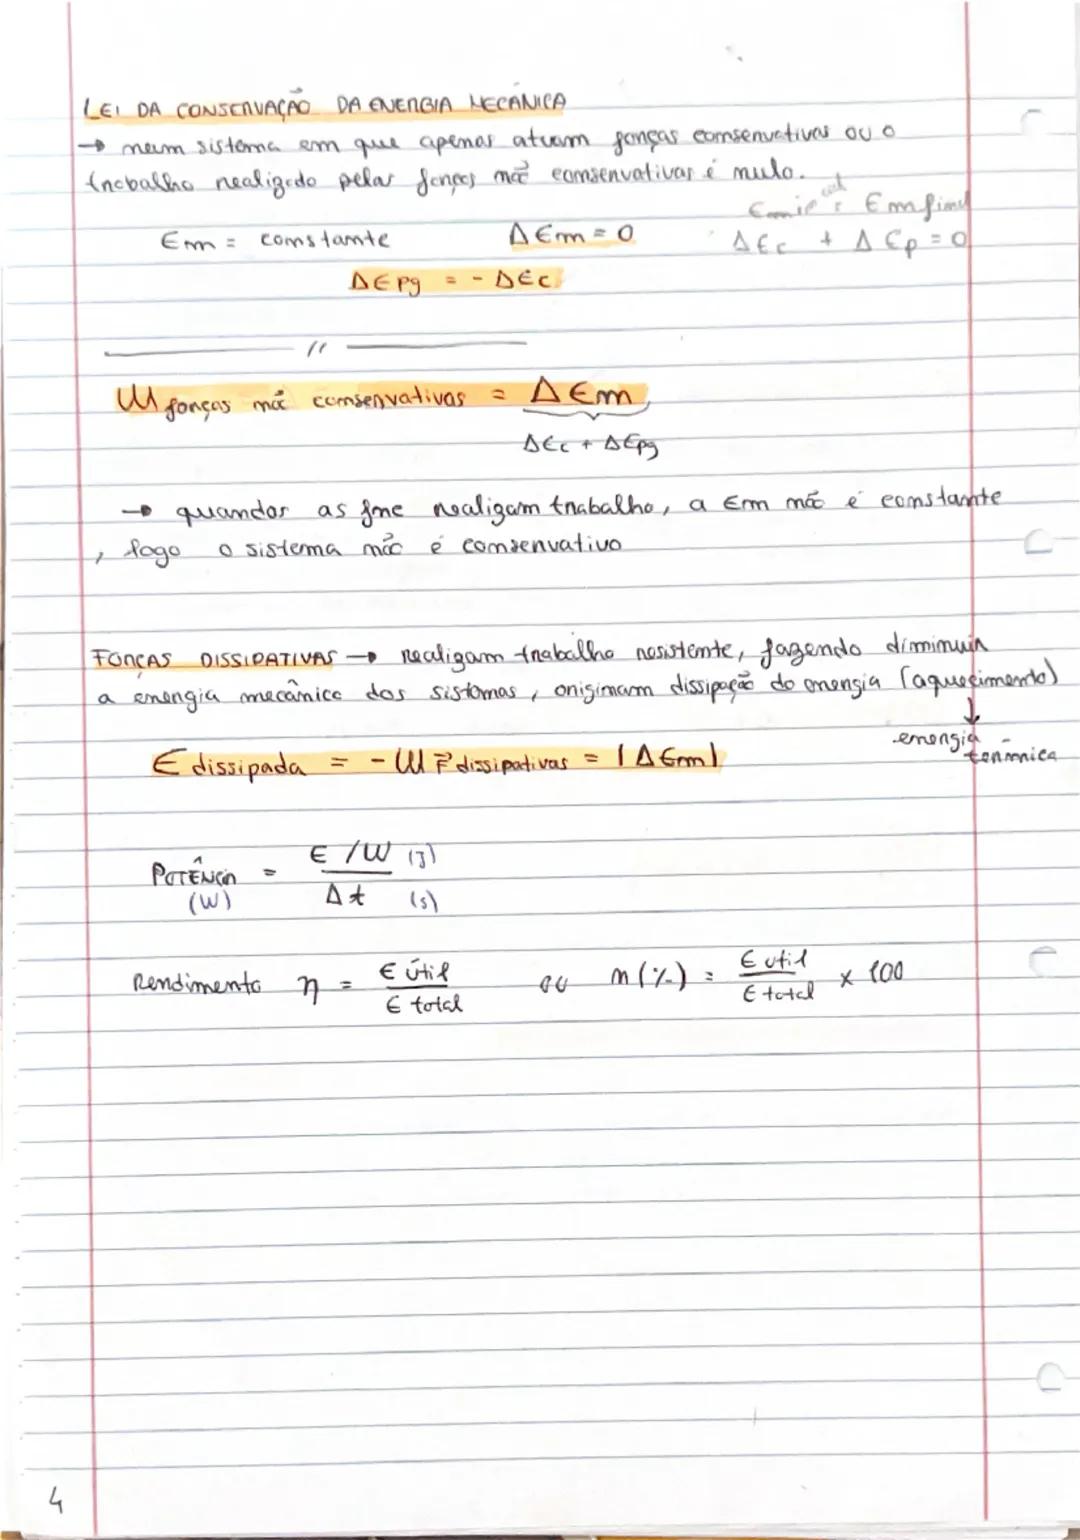 LEI DA CONSERVAÇÃO DA ENERGIA MECÂNICA
→ num sistema em que apenas atuam forças conservativas ou o
trabalho realizado pelas forças não conservativas é nulo.
Em inicial = Em final
Em = constante ΔEm = 0 ΔEc + ΔEp = 0
ΔEpg = - ΔEc
//
W forças não conservativas = ΔEm
ΔEc + ΔEpg
→ quandos as fnc realizam trabalho, a Em não é constante
, logo o sistema não é conservativo
FORÇAS DISSIPATIVAS → Realizam trabalho resistente, fazendo diminuir
a energia mecânica dos sistemas, originam dissipação de energia (aquecimento)
↓
energia térmica
E dissipada = - W F⃗ dissipativas = |ΔEm|
POTÊNCIA (W) = E/W (J) / Δt (s)
Rendimento η = E útil / E total ou η(%) = E útil / E total × 100
4